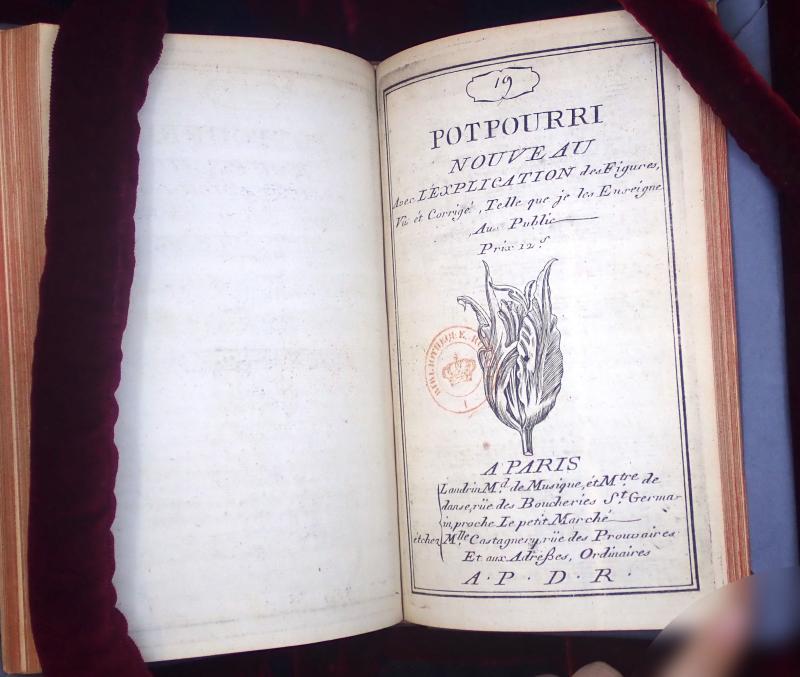 19
POTPOURRI
NOUVEAU
Avec L'EXPLICATION des Figures,
Vû ét Corrigé, Telle que je les Enseigne
Aux Public
Prix 12ſ
BIBLIOTHEQUE
A PARIS
Landrin Md. de Musique, ét Mtre de
danse, rüe des Boucheries St. Germa-
in, proche Le petit Marché
ét chez Mlle Castagnery, rüe des Prouvaires
Et aux Adreßes, Ordinaires
A·P·D·R·